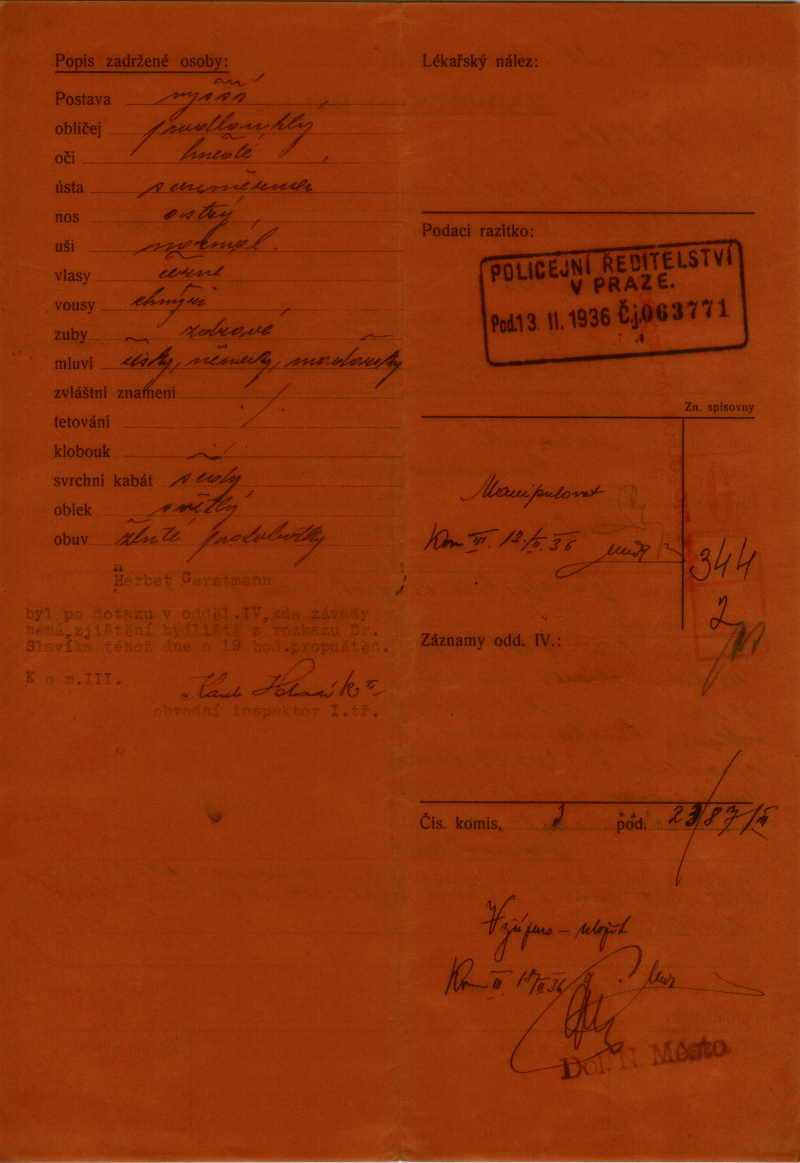 Popis zadržené osoby:
Postava vyšší
obličej prodlouhlý
oči hnědé
ústa souměrná
nos ostrý
uši normál.
vlasy černé
vousy chmýří
zuby zdravé
mluví česky, německy, maďarsky
zvláštní znamení /
tetování
klobouk
svrchní kabát šedý
oblek světlý
obuv žluté polobotky
Herbet Gerstmann
byl po dotazu v odděl.IV,kde závady
nemá,zjištění bydliště z rozkazu Dr.
Slavíka téhož dne o 19 hod.propuštěn.
K o m.III.
obvodní inspektor I.tř.
Lékařský nález:
Podací razítko:
POLICEJNÍ ŘEDITELSTVÍ
V PRAZE.
Pod.13. II. 1936 Č.j.063771
Zn. spisovny
Manipulovat
Kom III. 12/II. 36
344
2
Záznamy odd. IV.:
Čís. komis. 3 pod. 2387/II
Vzájemo - uložit
Kom III
Dol. N. Město